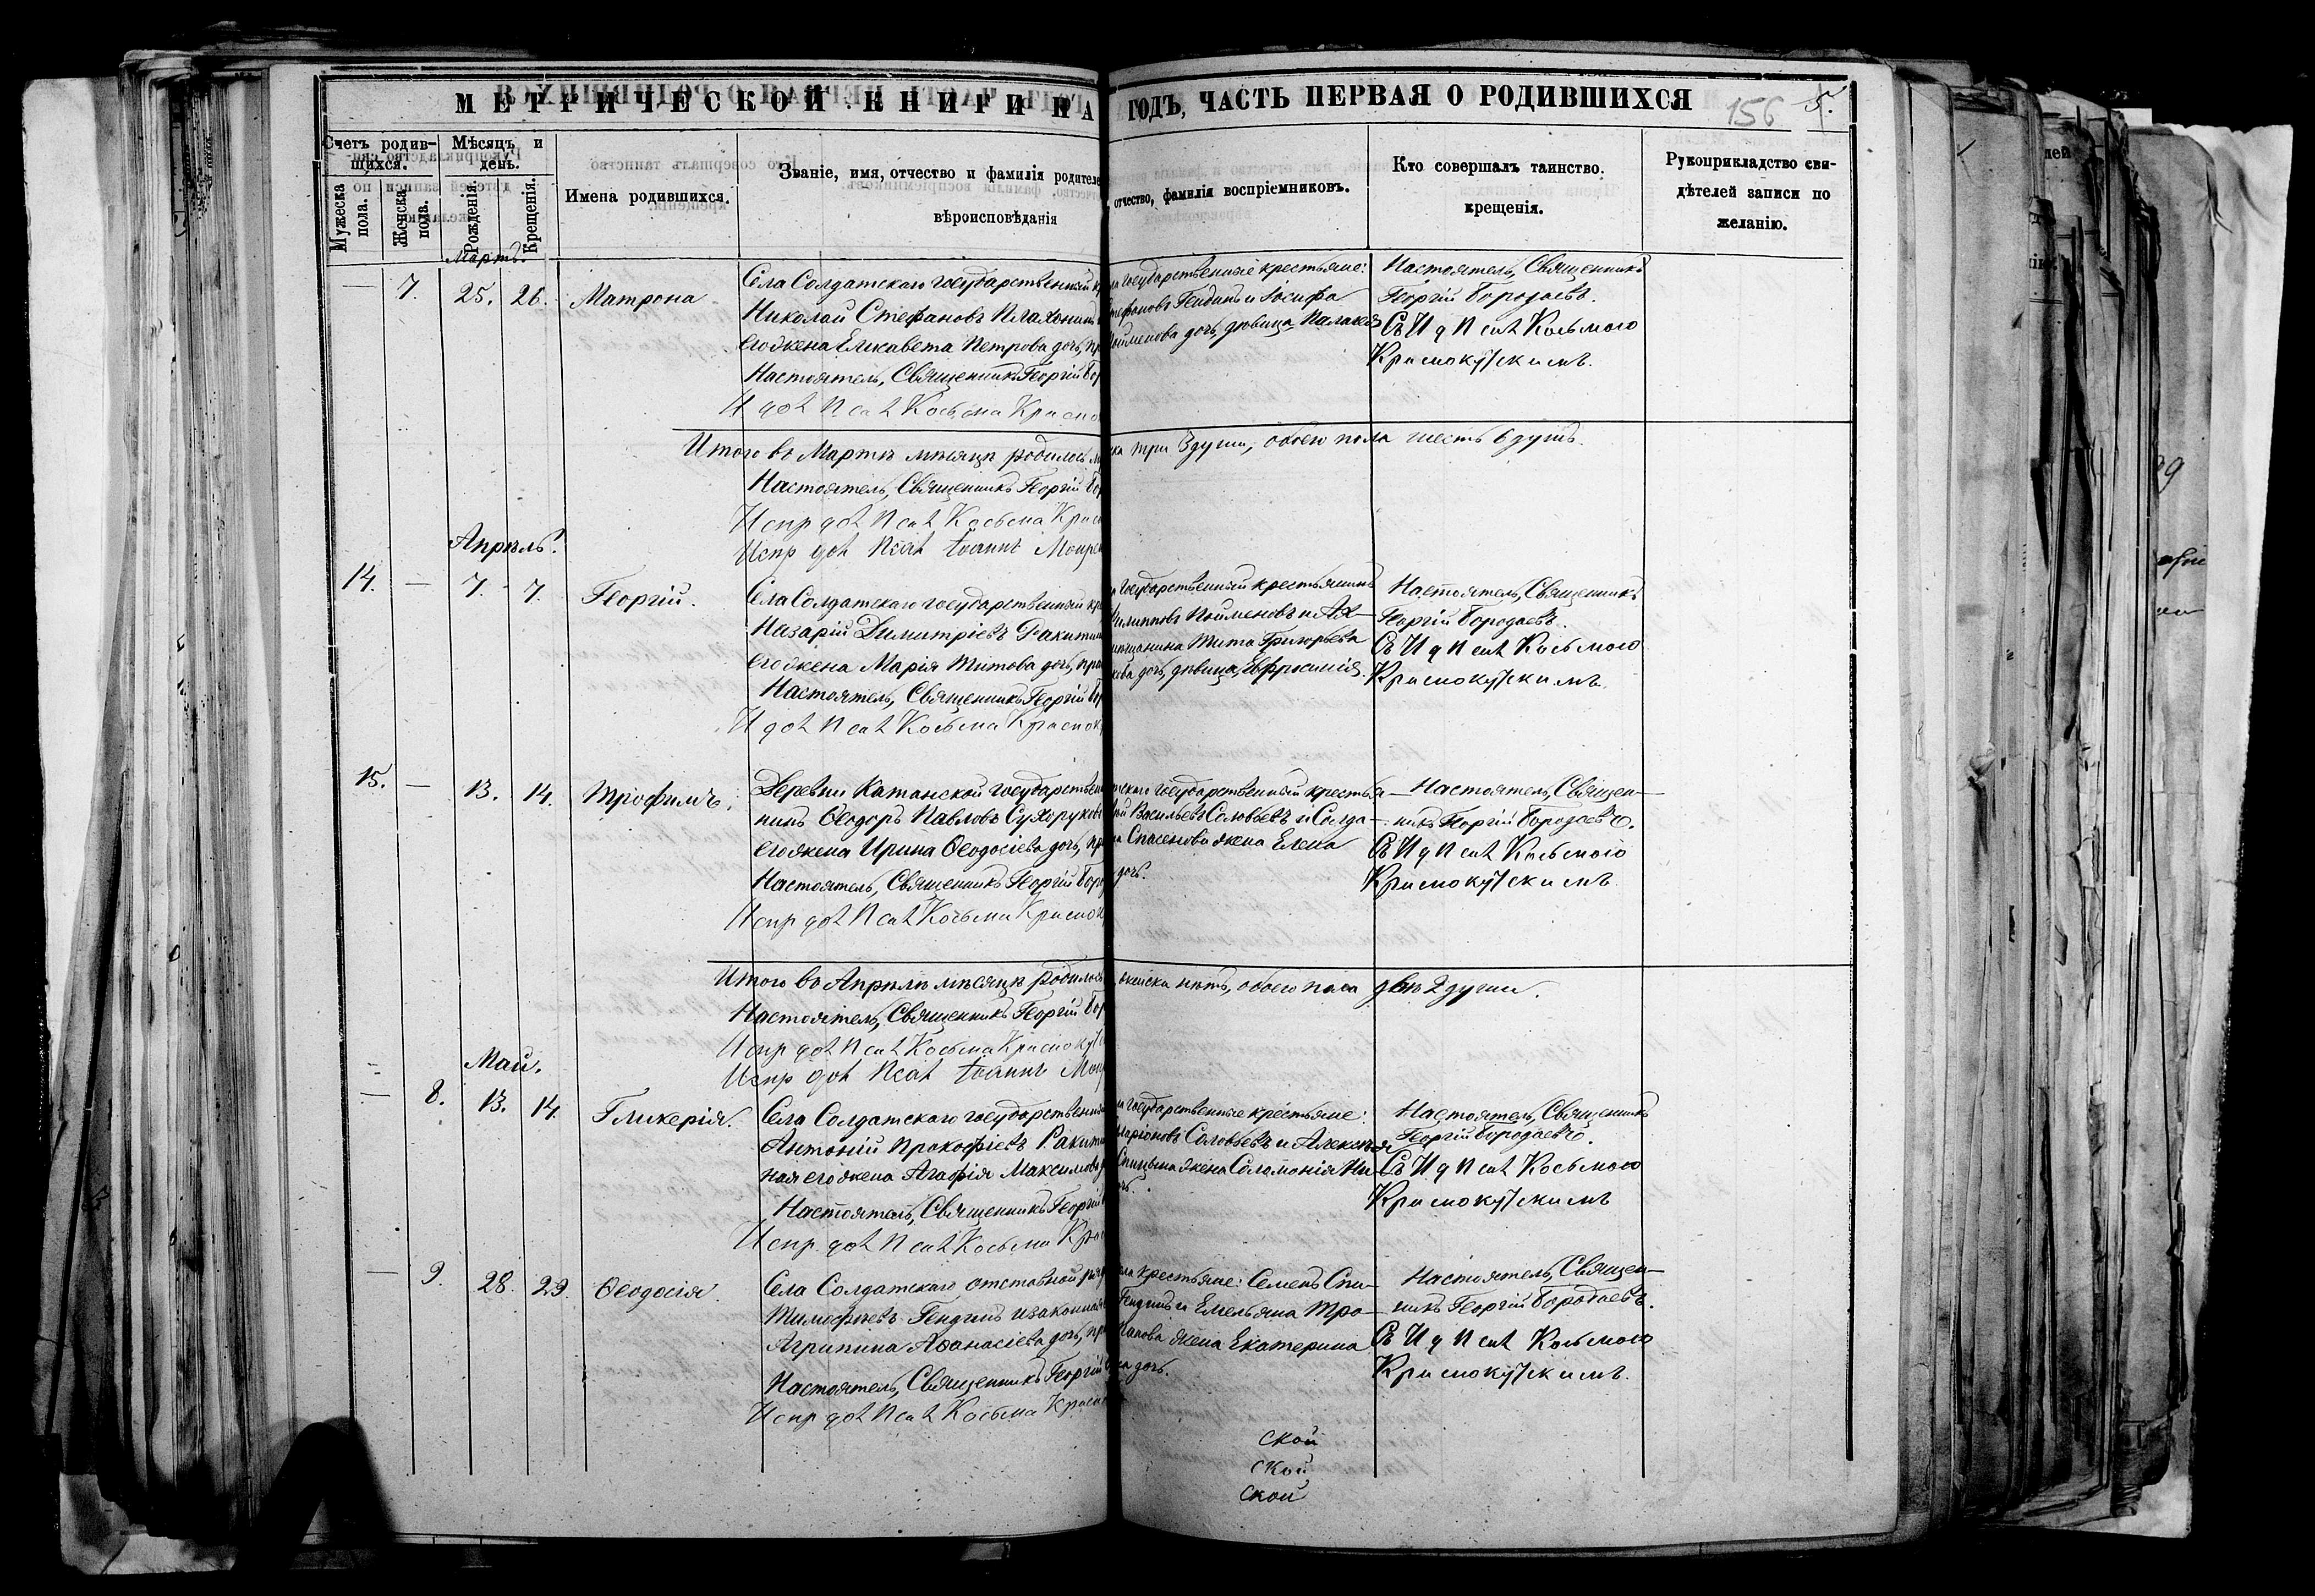 МЕТРИЧЕСКОЙ КНИГИ НА ГОДЪ, ЧАСТЬ ПЕРВАЯ О РОДИВШИХСЯ
156 5.
Счетъ родив-
шихся.
Мужеска пола.
Женска пола.
Мѣсяцъ и
день.
Рожденія.
Крещенія.
Имена родившихся.
Званіе, имя, отчество и фамилія родителе
вѣроисповѣданія
отчество, фамилія воспріемниковъ.
Кто совершалъ таинство.
крещенія.
Рукоприкладство сви-
дѣтелей записи по
желанію.
Мартъ.
— 7. 25. 26. Матрона
Села Солдатскаго государственный к
Николай Стефановъ Плахотинъ
его жена Елисавета Петрова дочь, пр
Настоятель, Священникъ Георгій Бор
И дол Псал Косьма Красно
государственные крестьяне:
тефановъ Гендинъ и Іосифа
Пойменова дочь, дѣвица Палагея
Настоятель, Священникъ
Георгій Бородаевъ.
Съ И д П сал Косьмою
Краснокутскимъ.
Итого въ Мартѣ мѣсяцѣ родилось м
ска три 3 души, обоего пола шесть 6 душъ.
Настоятель, Священникъ Георгій Бор
Испр дол Псал Косьма Крас
Испр дол Псал Іоаннъ
Апрѣль.
14. — 7. 7. Георгій.
Села Солдатскаго государственный кр
Назарій Димитріевъ Ракитин
его жена Марія Титова дочь, пра
Настоятель, Священникъ Георгій Бор
И дол Псал Косьма Краснок
государственный крестьянинъ
Филипповъ Пойменовъ и Ах-
тырчанина Тита Григорьева
кова дочь, дѣвица, Ефросинія.
Настоятель, Священникъ
Георгій Бородаевъ.
Съ И д П сал Косьмою
Краснокутскимъ.
15. — 13. 14. Трофимъ.
Деревни Катанской государствен
нинъ Ѳеодоръ Павловъ Сухоруков
его жена Ирина Ѳеодосіева дочь, пр
Настоятель, Священникъ Георгій Боро
Испр дол Псал Косьма Красно
тскаго государственный крестья-
Васильевъ Соловьевъ и Солда-
Спасенова жена Елена
дочь.
Настоятель, Священ-
никъ Георгій Бородаевъ.
Съ И д П сал Косьмою
Краснокутскимъ.
Итого въ Апрѣлѣ мѣсяцѣ родилось
женска нѣтъ, обоего пола двѣ 2 души.
Настоятель, Священникъ Георгій Бор
Испр дол Псал Косьма Краснокут
Испр дол Псал Іоаннъ
Май.
— 8. 13. 14. Гликерія.
Села Солдатскаго государственны
Антоній Прокофіевъ Ракити
ная его жена Агафія Максимова
Настоятель, Священникъ Георгій
Испр дол Псал Косьма Крас
государственные крестьяне:
ларіоновъ Соловьевъ и Алексѣя
Спицына жена Соломонія Ни-
Настоятель, Священникъ
Георгій Бородаевъ.
Съ И д П сал Косьмою
Краснокутскимъ
— 9. 28. 29. Ѳеодосія.
Села Солдатскаго отставной ряд
Тимофѣевъ Гендинъ и законная
Агрипина Аѳанасіева дочь, пр
Настоятель, Священникъ Георгій
Испр дол Псал Косьма Красно
крестьяне: Семенъ Спи-
Гендинъ и Емельяна Тро-
Папова жена Екатерина
на дочь.
Настоятель, Священ-
никъ Георгій Бородаевъ.
Съ И д П сал Косьмою
Краснокутскимъ.
ской
ской
ской